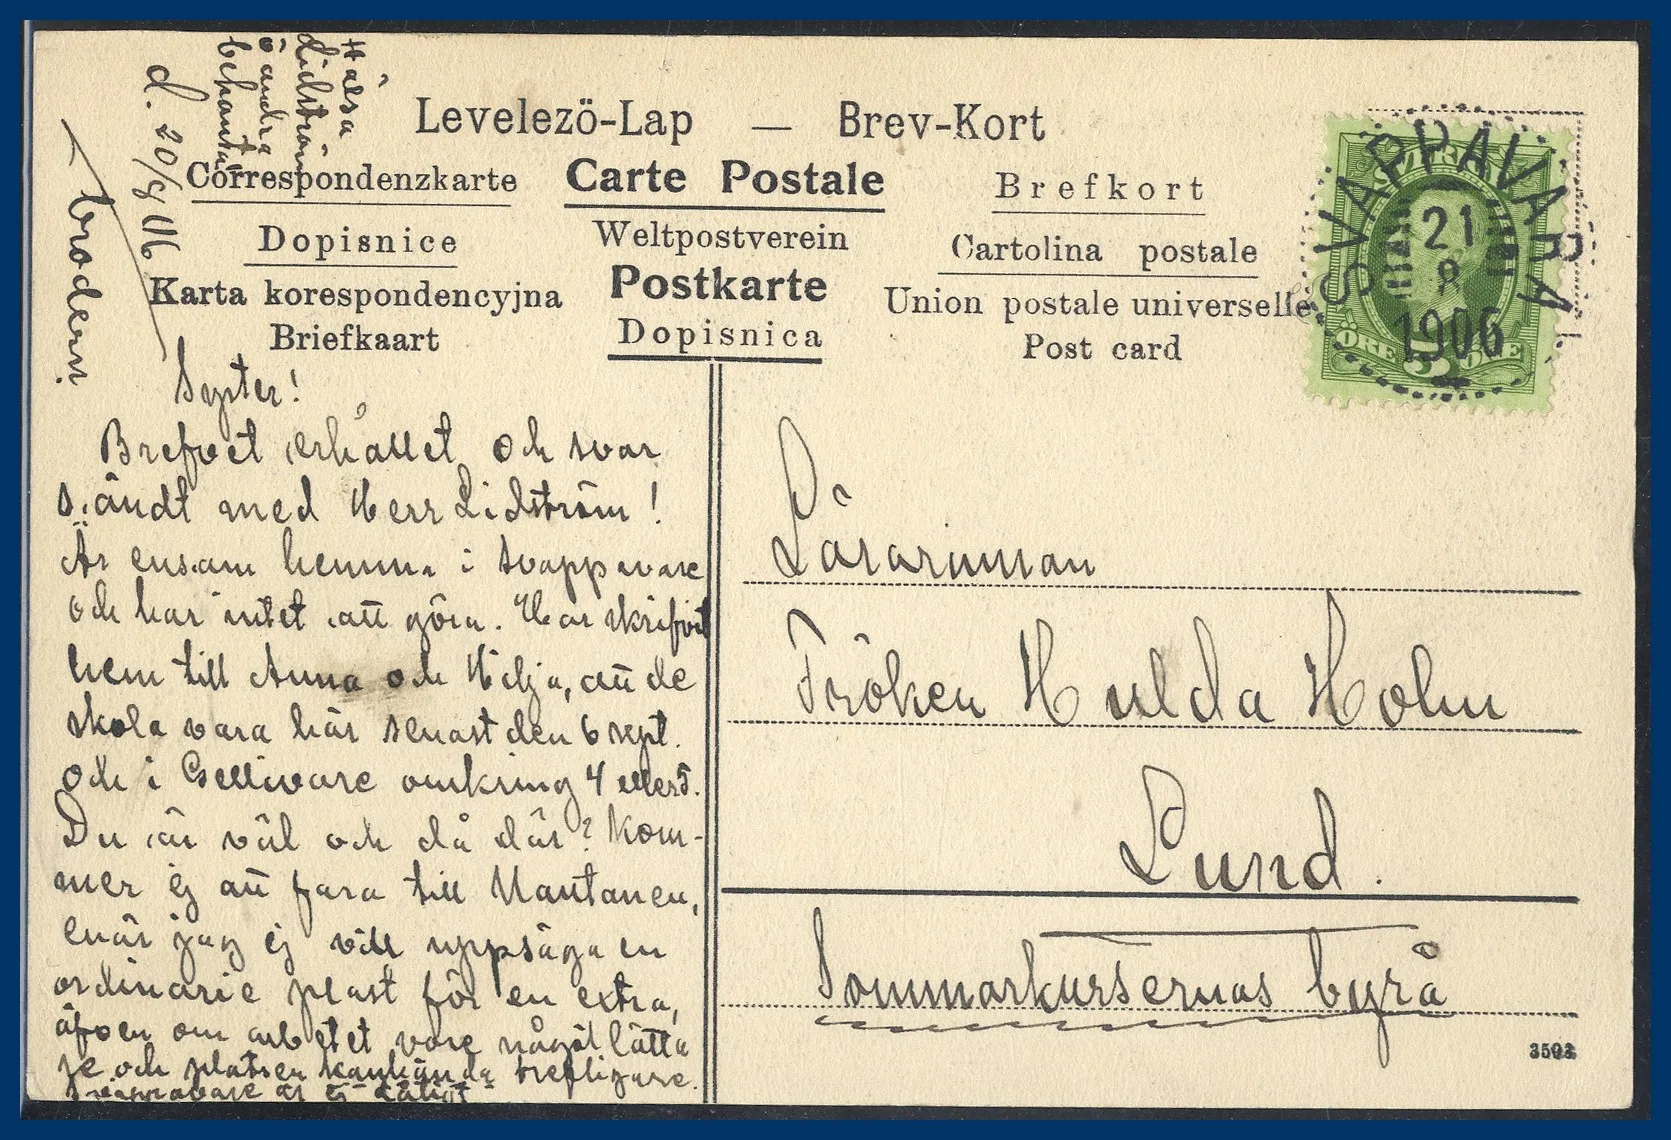 Levelezö-Lap — Brev-Kort
Correspondenzkarte Carte Postale Brefkort
Dopisnice Weltpostverein Cartolina postale
Karta korespondencyjna Postkarte Union postale universelle
Briefkaart Dopisnica Post card
SVAPPAVARA
21
8
1906
ÖRE 5 ÖRE
d. 20/8 06
Syster!
Brefvet erhållet och svar
sändt med Herr Lidström!
Är ensam hemma i Svappavare
och har intet att göra. Har skrifvit
hem till Anna och Hilja, att de
skola vara här senast den 6 sept.
och i Gellivare omkring 4 eller 5.
Du är väl och då där? Kom-
mer ej att fara till
enär jag ej vill uppsäga en
ordinarie plast för en extra,
äfven om arbetet vore något lätta
re och platsen kanhända trefligare.
Svappavare är ej dåligt
brodern
Hälsa
Lidström
o andra
bekanta
Lärarinnan
Fröken Hulda Holm
Lund.
Sommarkursernas byrå
3593